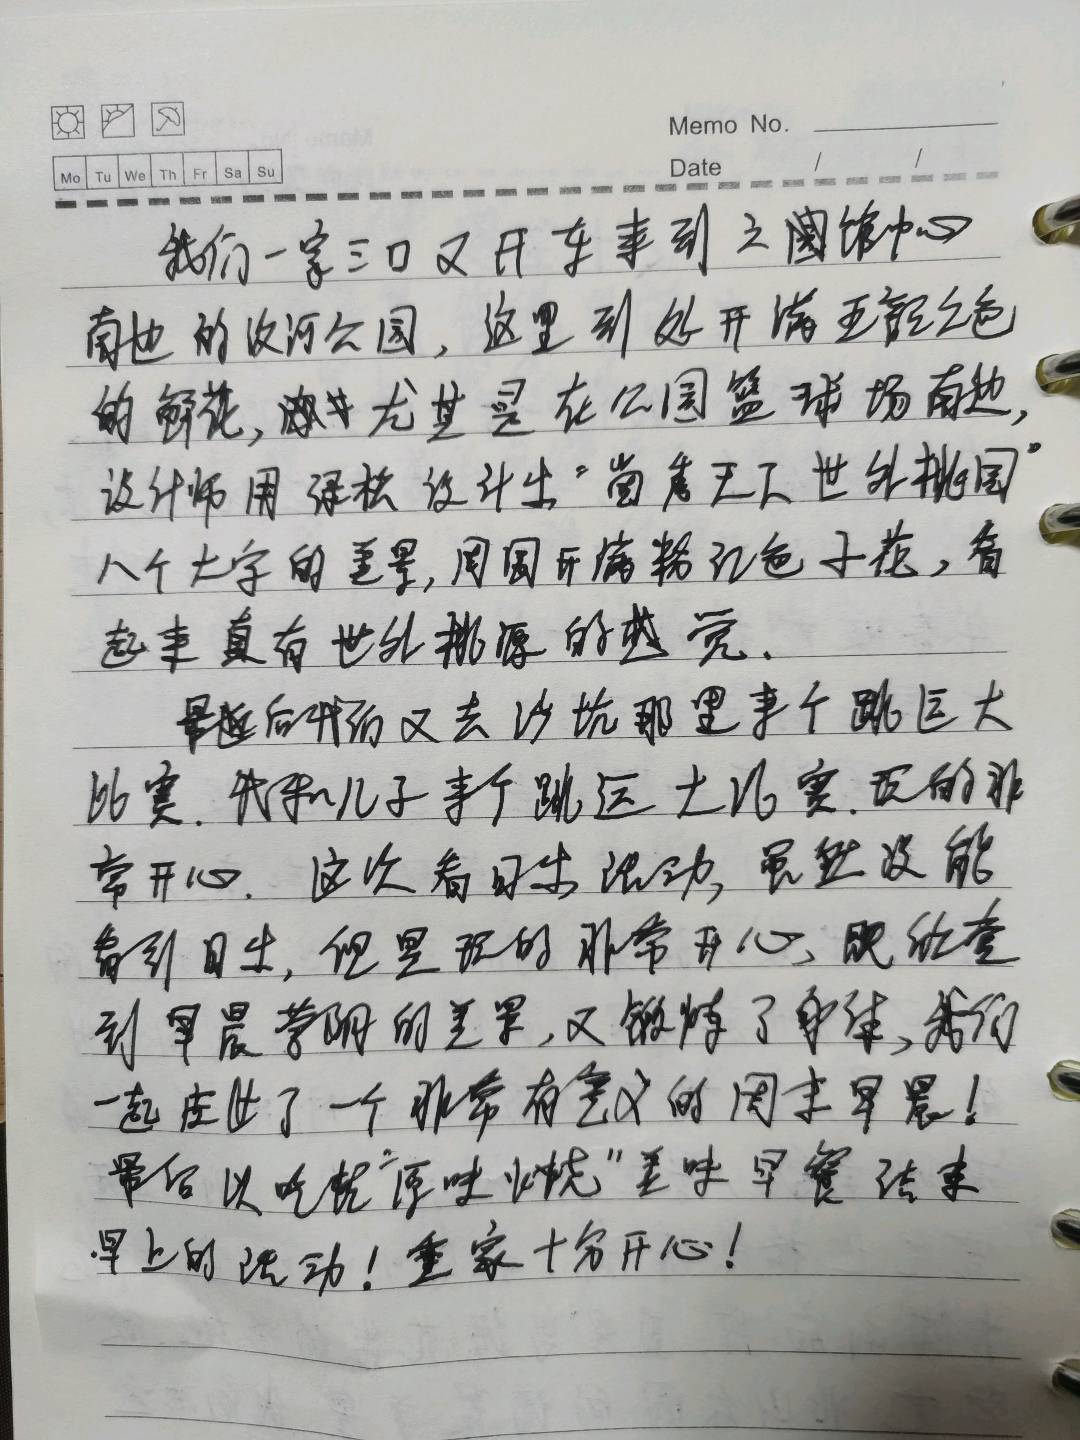 Memo No.
Date / /
Mo Tu We Th Fr Sa Su
我们一家三口又开车来到文图馆中心
南边的汶河公园，这里到处开满五颜六色
的鲜花，尤其是在公园篮球场南边，
设计师用绿松设计出“天下世外桃园”
八个大字的美景，周围开满粉红色子花，看
起来真有世外桃源的感觉．
最后我们又去沙坑那里来个跳远大
比赛．我和儿子来个跳远大比赛．玩的非
常开心．这次看日出活动，虽然没能
看到日出，但是玩的非常开心、既欣赏
到早晨的美景，又锻炼了身体，我们
一起度过了一个非常有意义的周末早晨！
最后以吃“原味火烧”美味早餐结束
早上的活动！全家十分开心！